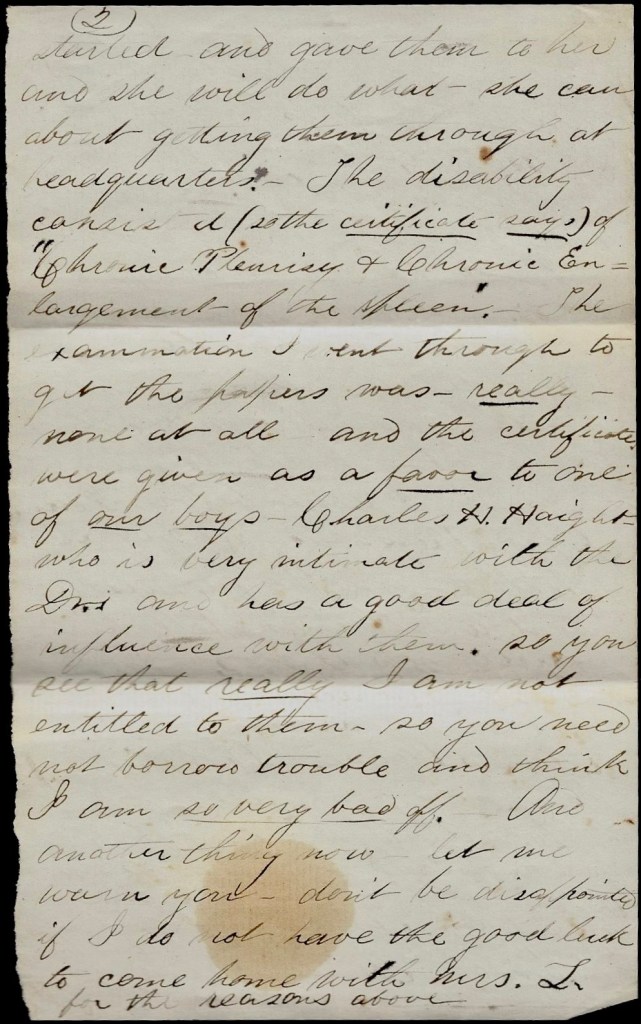 2
started and gave them to her
and she will do what - she can
about getting them through at
headquarters. - The disability
consisted (so the certificate says) of
"Chronic Pleurisy & Chronic En=
largement of the spleen". - The
examination I went through to
get the papers was - really -
none at all and the certificates
were given as a favor to one
of our boys - Charles H. Haight -
who is very intimate with the
Drs and has a good deal of
influence with them. so you
see that really I am not
entitled to them - so you need
not borrow trouble and think
I am so very bad off. - And
another thing now - let me
warn you - don't be disappointed
if I do not have the good luck
to come home with Mrs. L.
for the reasons above